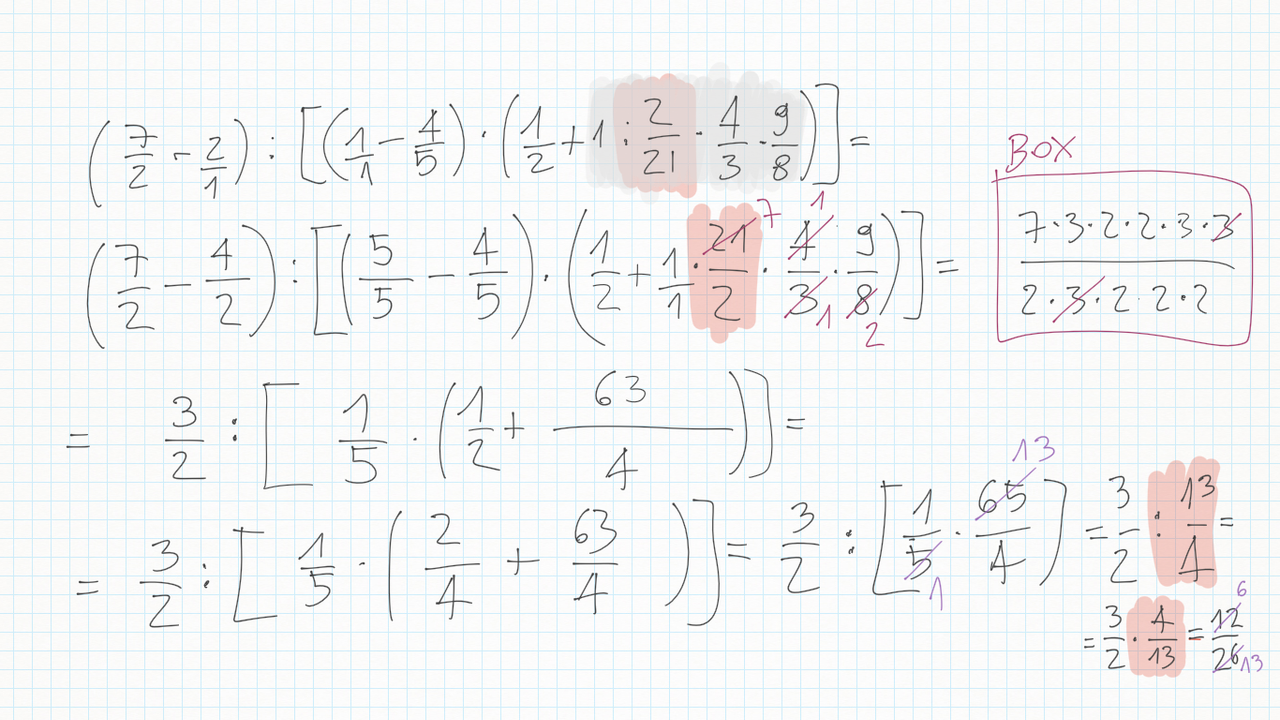 (7/2 - 2/1) : [(1/1 - 4/5) · (1/2 + 1 : 2/21 · 4/3 · 9/8)] =
BOX
(7/2 - 4/2) : [(5/5 - 4/5) · (1/2 + 1/1 · 21/2 · 4/3 · 9/8)] =
7 1
1 2
7·3·2·2·3·3 / 2·3·2·2·2
= 3/2 : [1/5 · (1/2 + 63/4)] =
= 3/2 : [1/5 · (2/4 + 63/4)] = 3/2 : [1/5 · 65/4) = 3/2 : 13/4 =
13
1
= 3/2 · 4/13 = 12/26
6
13